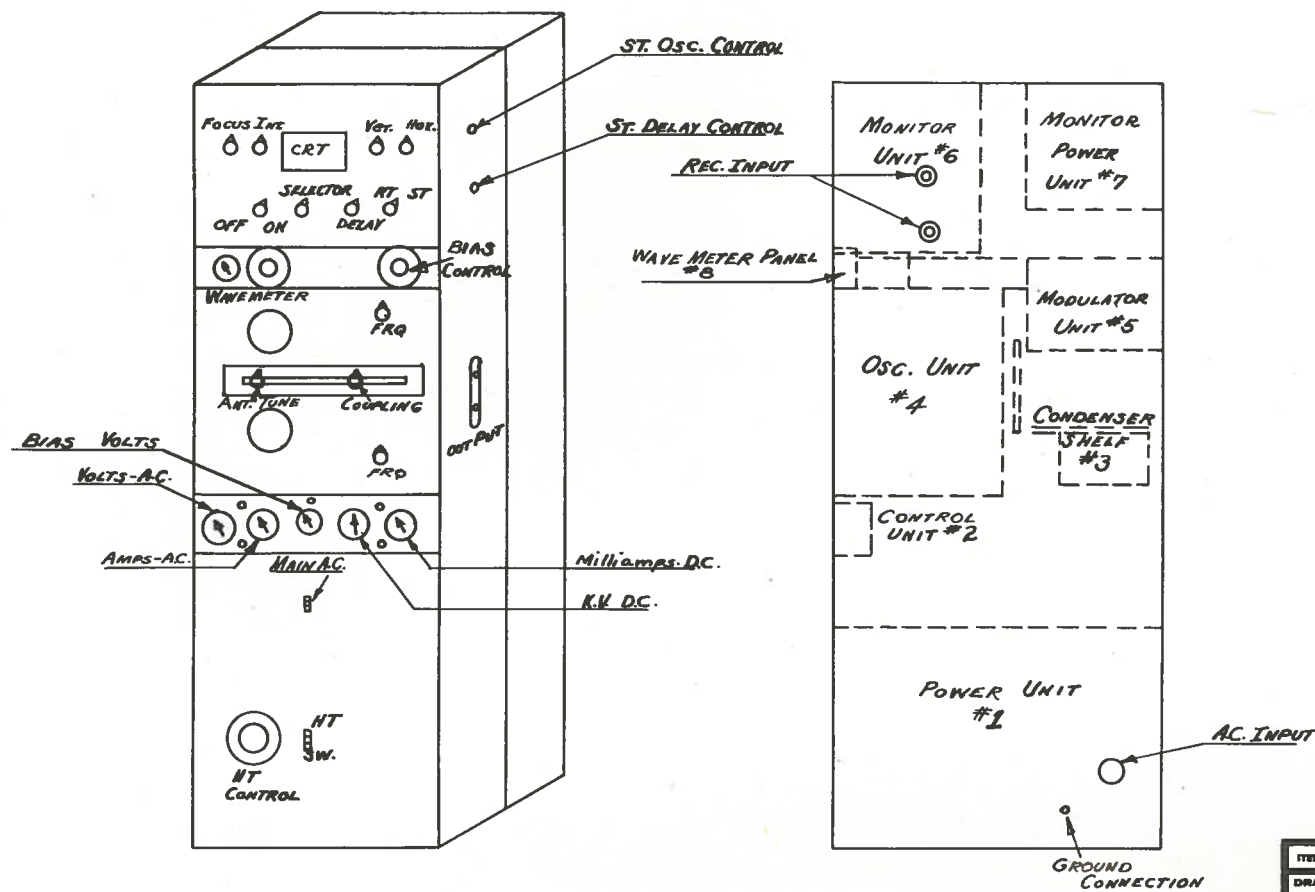 ST. OSC. CONTROL
ST. DELAY CONTROL
FOCUS INT.
VET. HOR.
CRT
SELECTOR
RT ST
OFF ON
DELAY
BIAS
CONTROL
WAVEMETER
FRQ
ANT. TUNE
COUPLING
OUTPUT
FRQ
BIAS VOLTS
VOLTS-A.C.
AMPS-A.C.
MAIN A.C.
MILLIAMPS. D.C.
K.V. D.C.
HT
SW.
HT
CONTROL
MONITOR
UNIT #6
REC. INPUT
MONITOR
POWER
UNIT #7
WAVE METER PANEL
#8
MODULATOR
UNIT #5
OSC. UNIT
#4
CONDENSER
SHELF
#3
CONTROL
UNIT #2
POWER UNIT
#1
A.C. INPUT
GROUND
CONNECTION